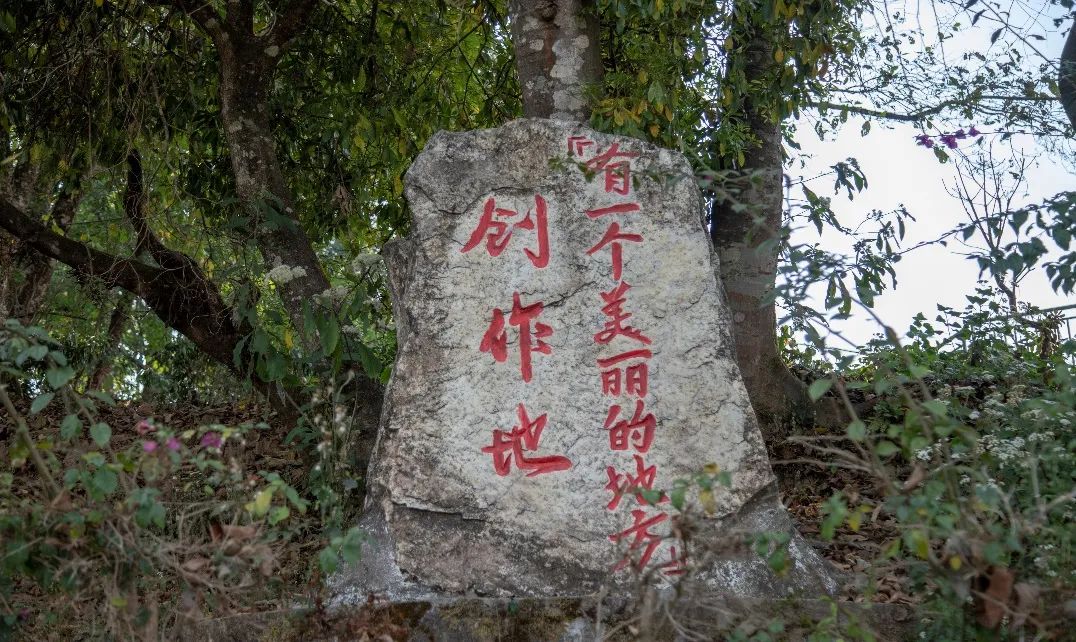 『有一个美丽的地方』
创作地